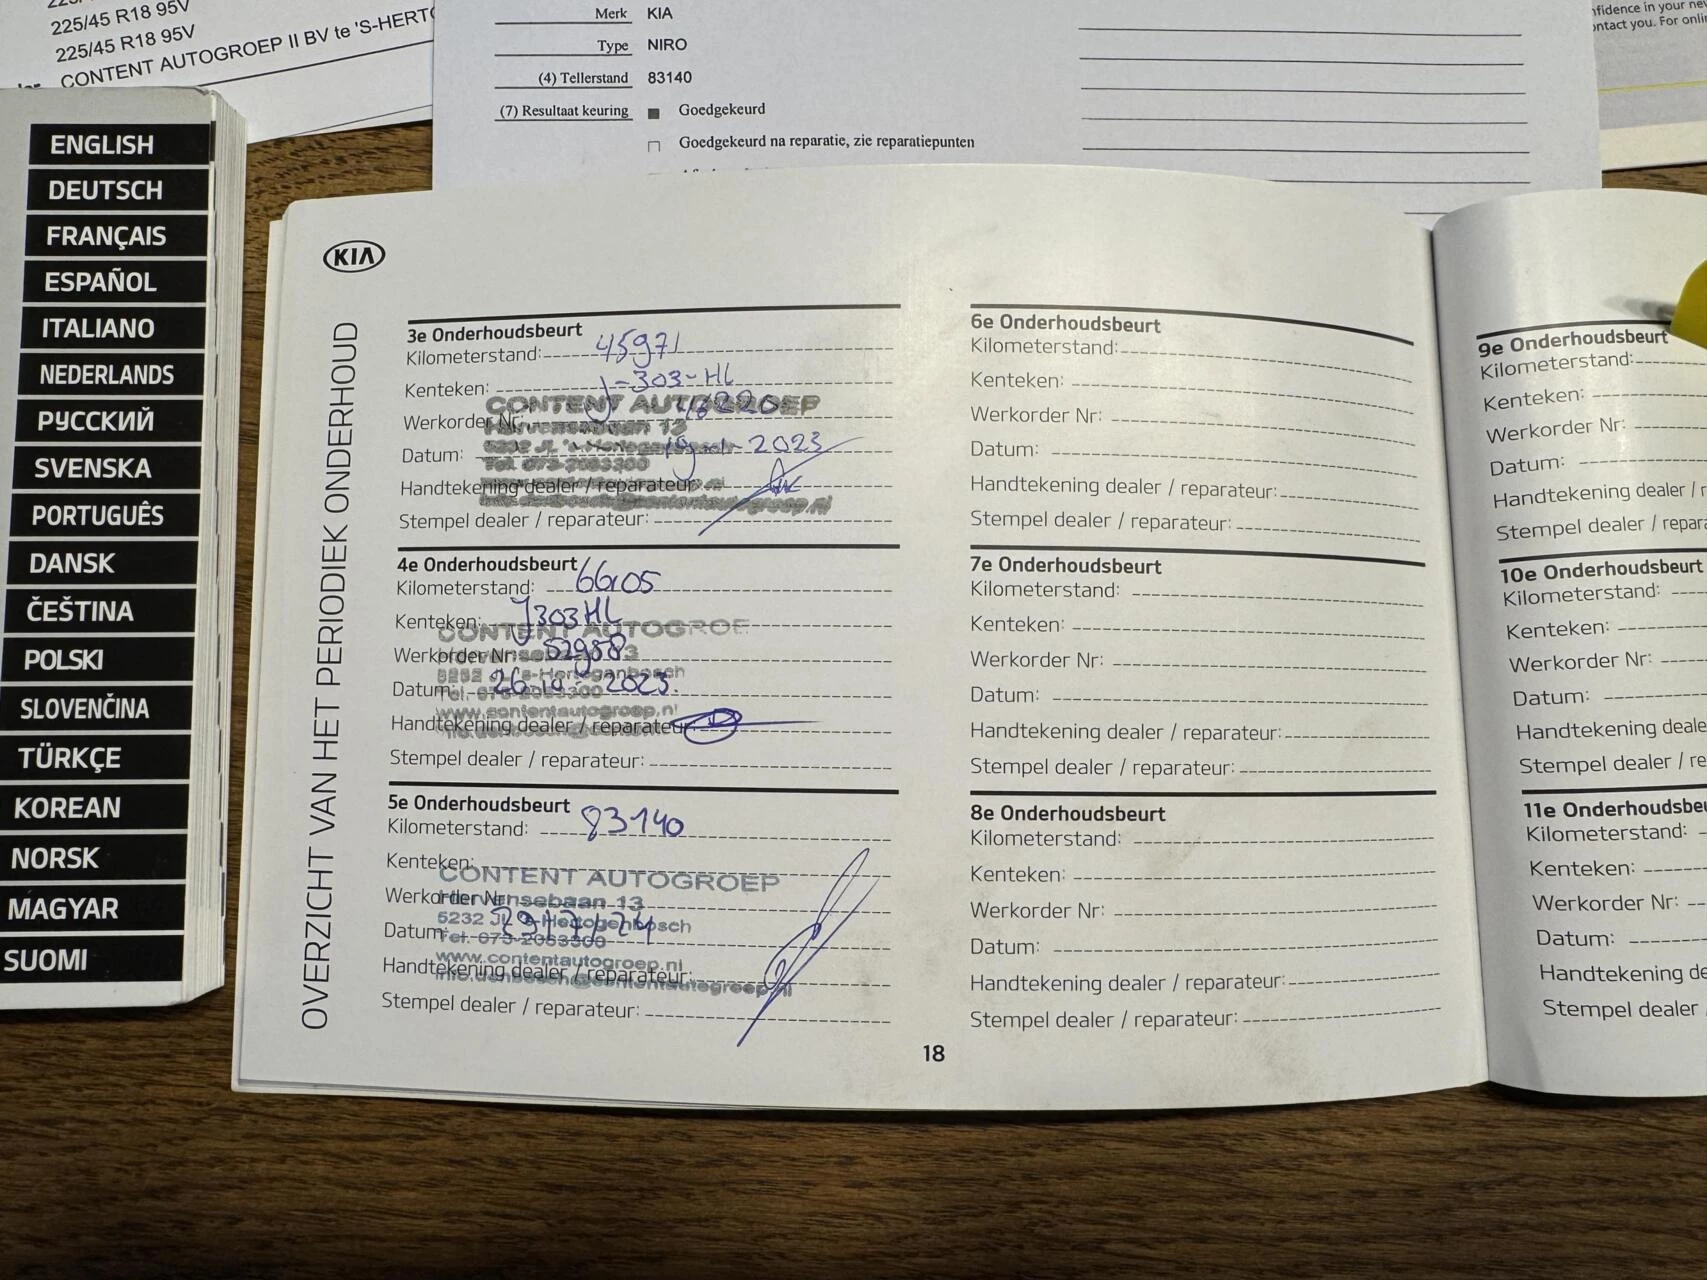 225/45 R18 95V
225/45 R18 95V
CONTENT AUTOGROEP II BV te 'S-HERTO
Merk KIA
Type NIRO
(4) Tellerstand 83140
(7) Resultaat keuring Goedgekeurd
Goedgekeurd na reparatie, zie reparatiepunten
nfidence in your new
ontact you. For onli
ENGLISH
DEUTSCH
FRANÇAIS
ESPAÑOL
ITALIANO
NEDERLANDS
РУССКИЙ
SVENSKA
PORTUGUÊS
DANSK
ČEŠTINA
POLSKI
SLOVENČINA
TÜRKÇE
KOREAN
NORSK
MAGYAR
SUOMI
KIA
OVERZICHT VAN HET PERIODIEK ONDERHOUD
3e Onderhoudsbeurt
Kilometerstand: 45971
Kenteken: J-303-HL
CONTENT AUTOGROEP
Werkorder Nr: 46220
5232 JL 's-Hertogenbosch
Datum: 2023
Tel. 073-2053300
Handtekening dealer / reparateur:
Stempel dealer / reparateur:
4e Onderhoudsbeurt
Kilometerstand: 66105
Kenteken: J303HL
CONTENT AUTOGROE
Werkorder Nr: 52958
5232 JL 's-Hertogenbosch
Datum: 2023.
Tel. 073-2053300
www.contentautogroep.nl
Handtekening dealer / reparateur
Stempel dealer / reparateur:
5e Onderhoudsbeurt
Kilometerstand: 83140
Kenteken:
CONTENT AUTOGROEP
Werkorder Nr
Hervensebaan 13
5232 JL 's-Hertogenbosch
Datum: 29/7/24
Tel. 073-2053300
www.contentautogroep.nl
Handtekening dealer / reparateur:
info.denbosch@contentautogroep.nl
Stempel dealer / reparateur:
6e Onderhoudsbeurt
Kilometerstand:
Kenteken:
Werkorder Nr:
Datum:
Handtekening dealer / reparateur:
Stempel dealer / reparateur:
7e Onderhoudsbeurt
Kilometerstand:
Kenteken:
Werkorder Nr:
Datum:
Handtekening dealer / reparateur:
Stempel dealer / reparateur:
8e Onderhoudsbeurt
Kilometerstand:
Kenteken:
Werkorder Nr:
Datum:
Handtekening dealer / reparateur:
Stempel dealer / reparateur:
18
9e Onderhoudsbeurt
Kilometerstand:
Kenteken:
Werkorder Nr:
Datum:
Handtekening dealer / r
Stempel dealer / repara
10e Onderhoudsbeurt
Kilometerstand:
Kenteken:
Werkorder Nr:
Datum:
Handtekening deale
Stempel dealer / re
11e Onderhoudsbeu
Kilometerstand:
Kenteken:
Werkorder Nr:
Datum:
Handtekening de
Stempel dealer /